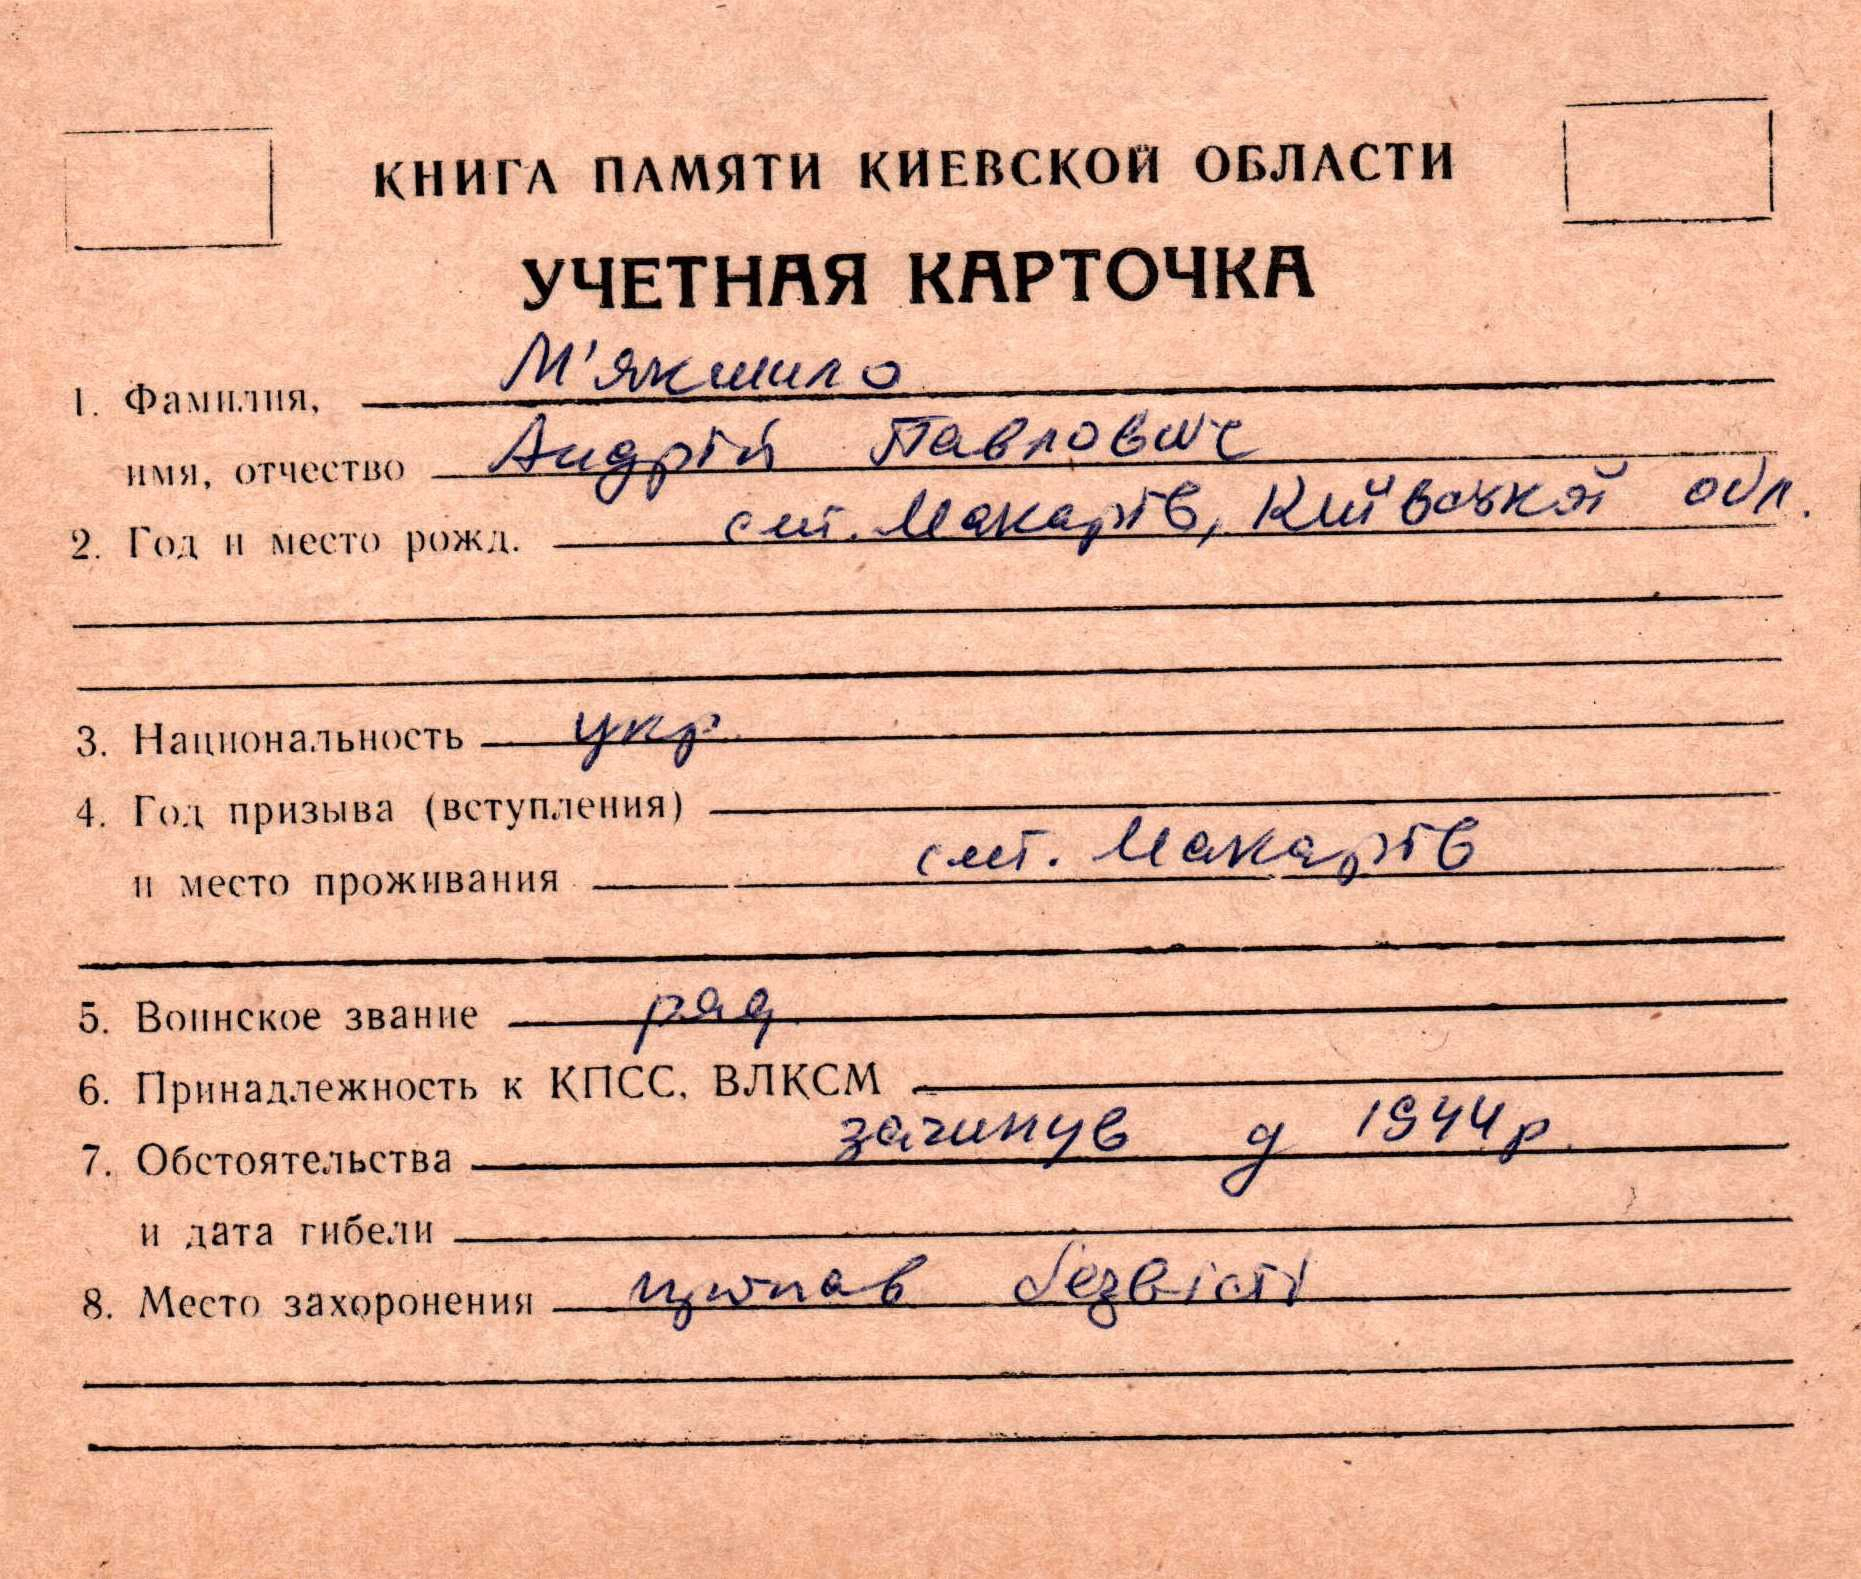 КНИГА ПАМЯТИ КИЕВСКОЙ ОБЛАСТИ
УЧЕТНАЯ КАРТОЧКА
1. Фамилия, М'якшило
имя, отчество Андрій Павлович
2. Год и место рожд. смт. Макарів, Київської обл.
3. Национальность укр.
4. Год призыва (вступления)
и место проживания смт. Макарів
5. Воинское звание ряд.
6. Принадлежность к КПСС, ВЛКСМ
7. Обстоятельства загинув у 1944 р.
и дата гибели
8. Место захоронения пропав безвісті